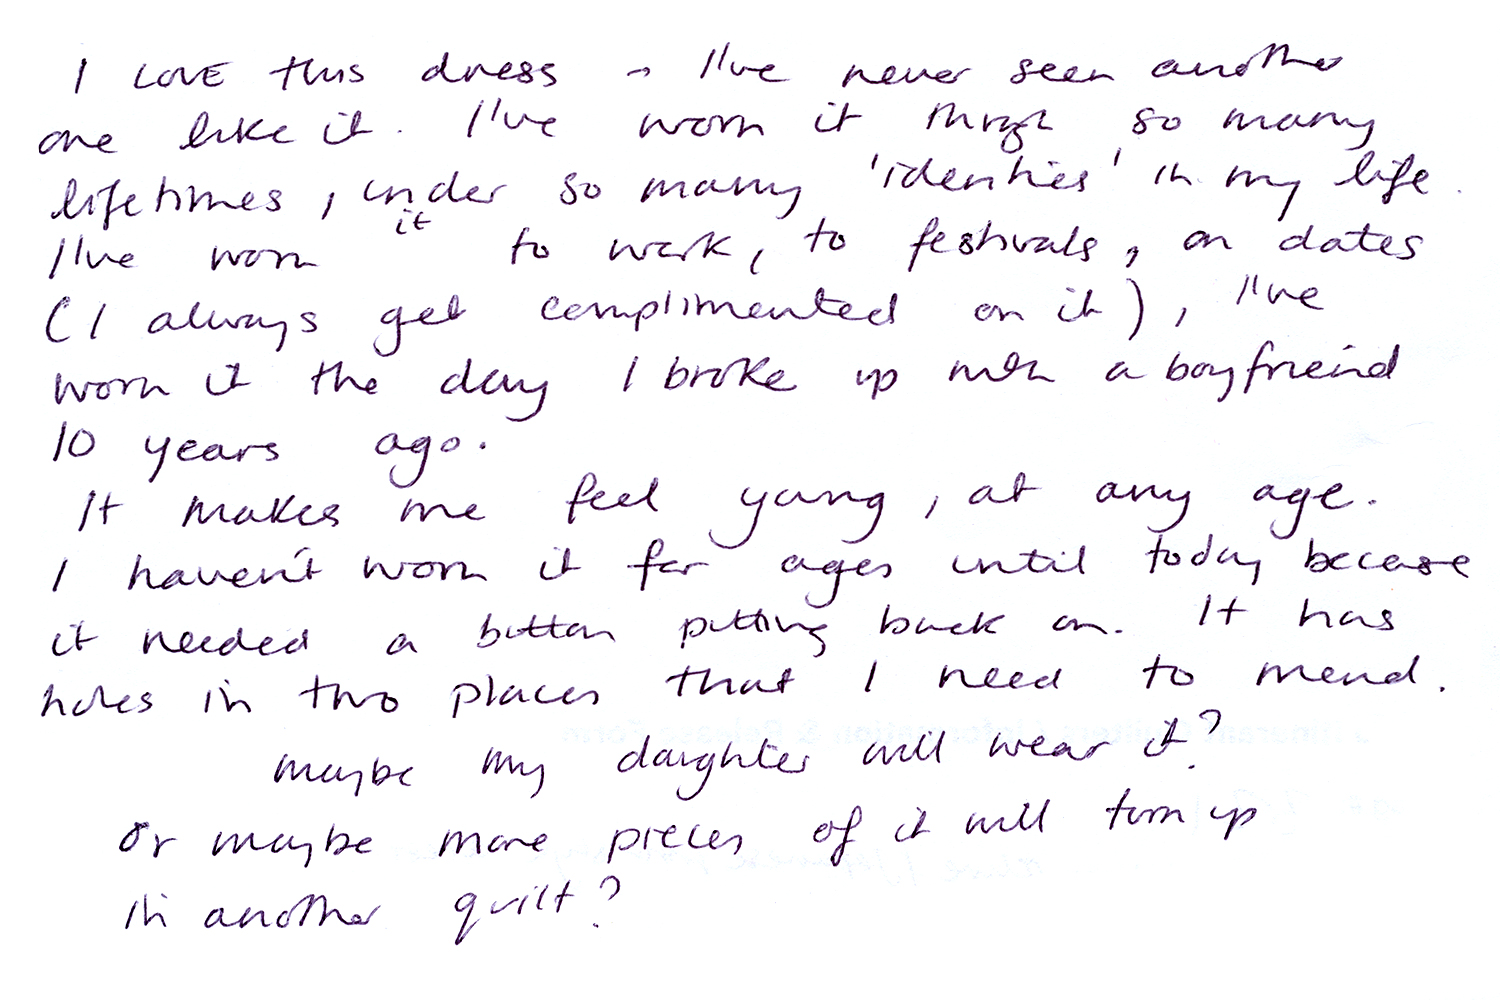 I LOVE this dress - I've never seen another
one like it. I've worn it through so many
lifetimes, under so many 'identities' in my life.
I've worn it to work, to festivals, on dates
(I always get complimented on it), I've
worn it the day I broke up with a boyfriend
10 years ago.
It makes me feel young, at any age.
I haven't worn it for ages until today because
it needed a button putting back on. It has
holes in two places that I need to mend.
maybe my daughter will wear it?
Or maybe more pieces of it will turn up
in another quilt?